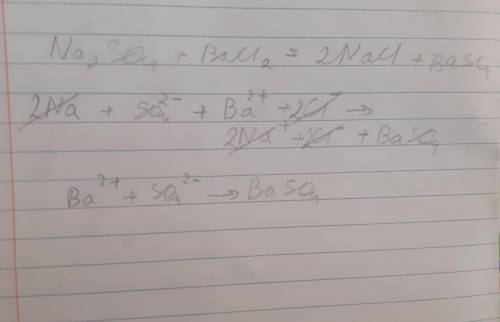 Na₂SO₄ + BaCl₂ = 2NaCl + BaSO₄
2Na + SO₄²⁻ + Ba²⁺ + 2Cl⁻ →
2Na⁺ + 2Cl⁻ + BaSO₄
Ba²⁺ + SO₄²⁻ → BaSO₄